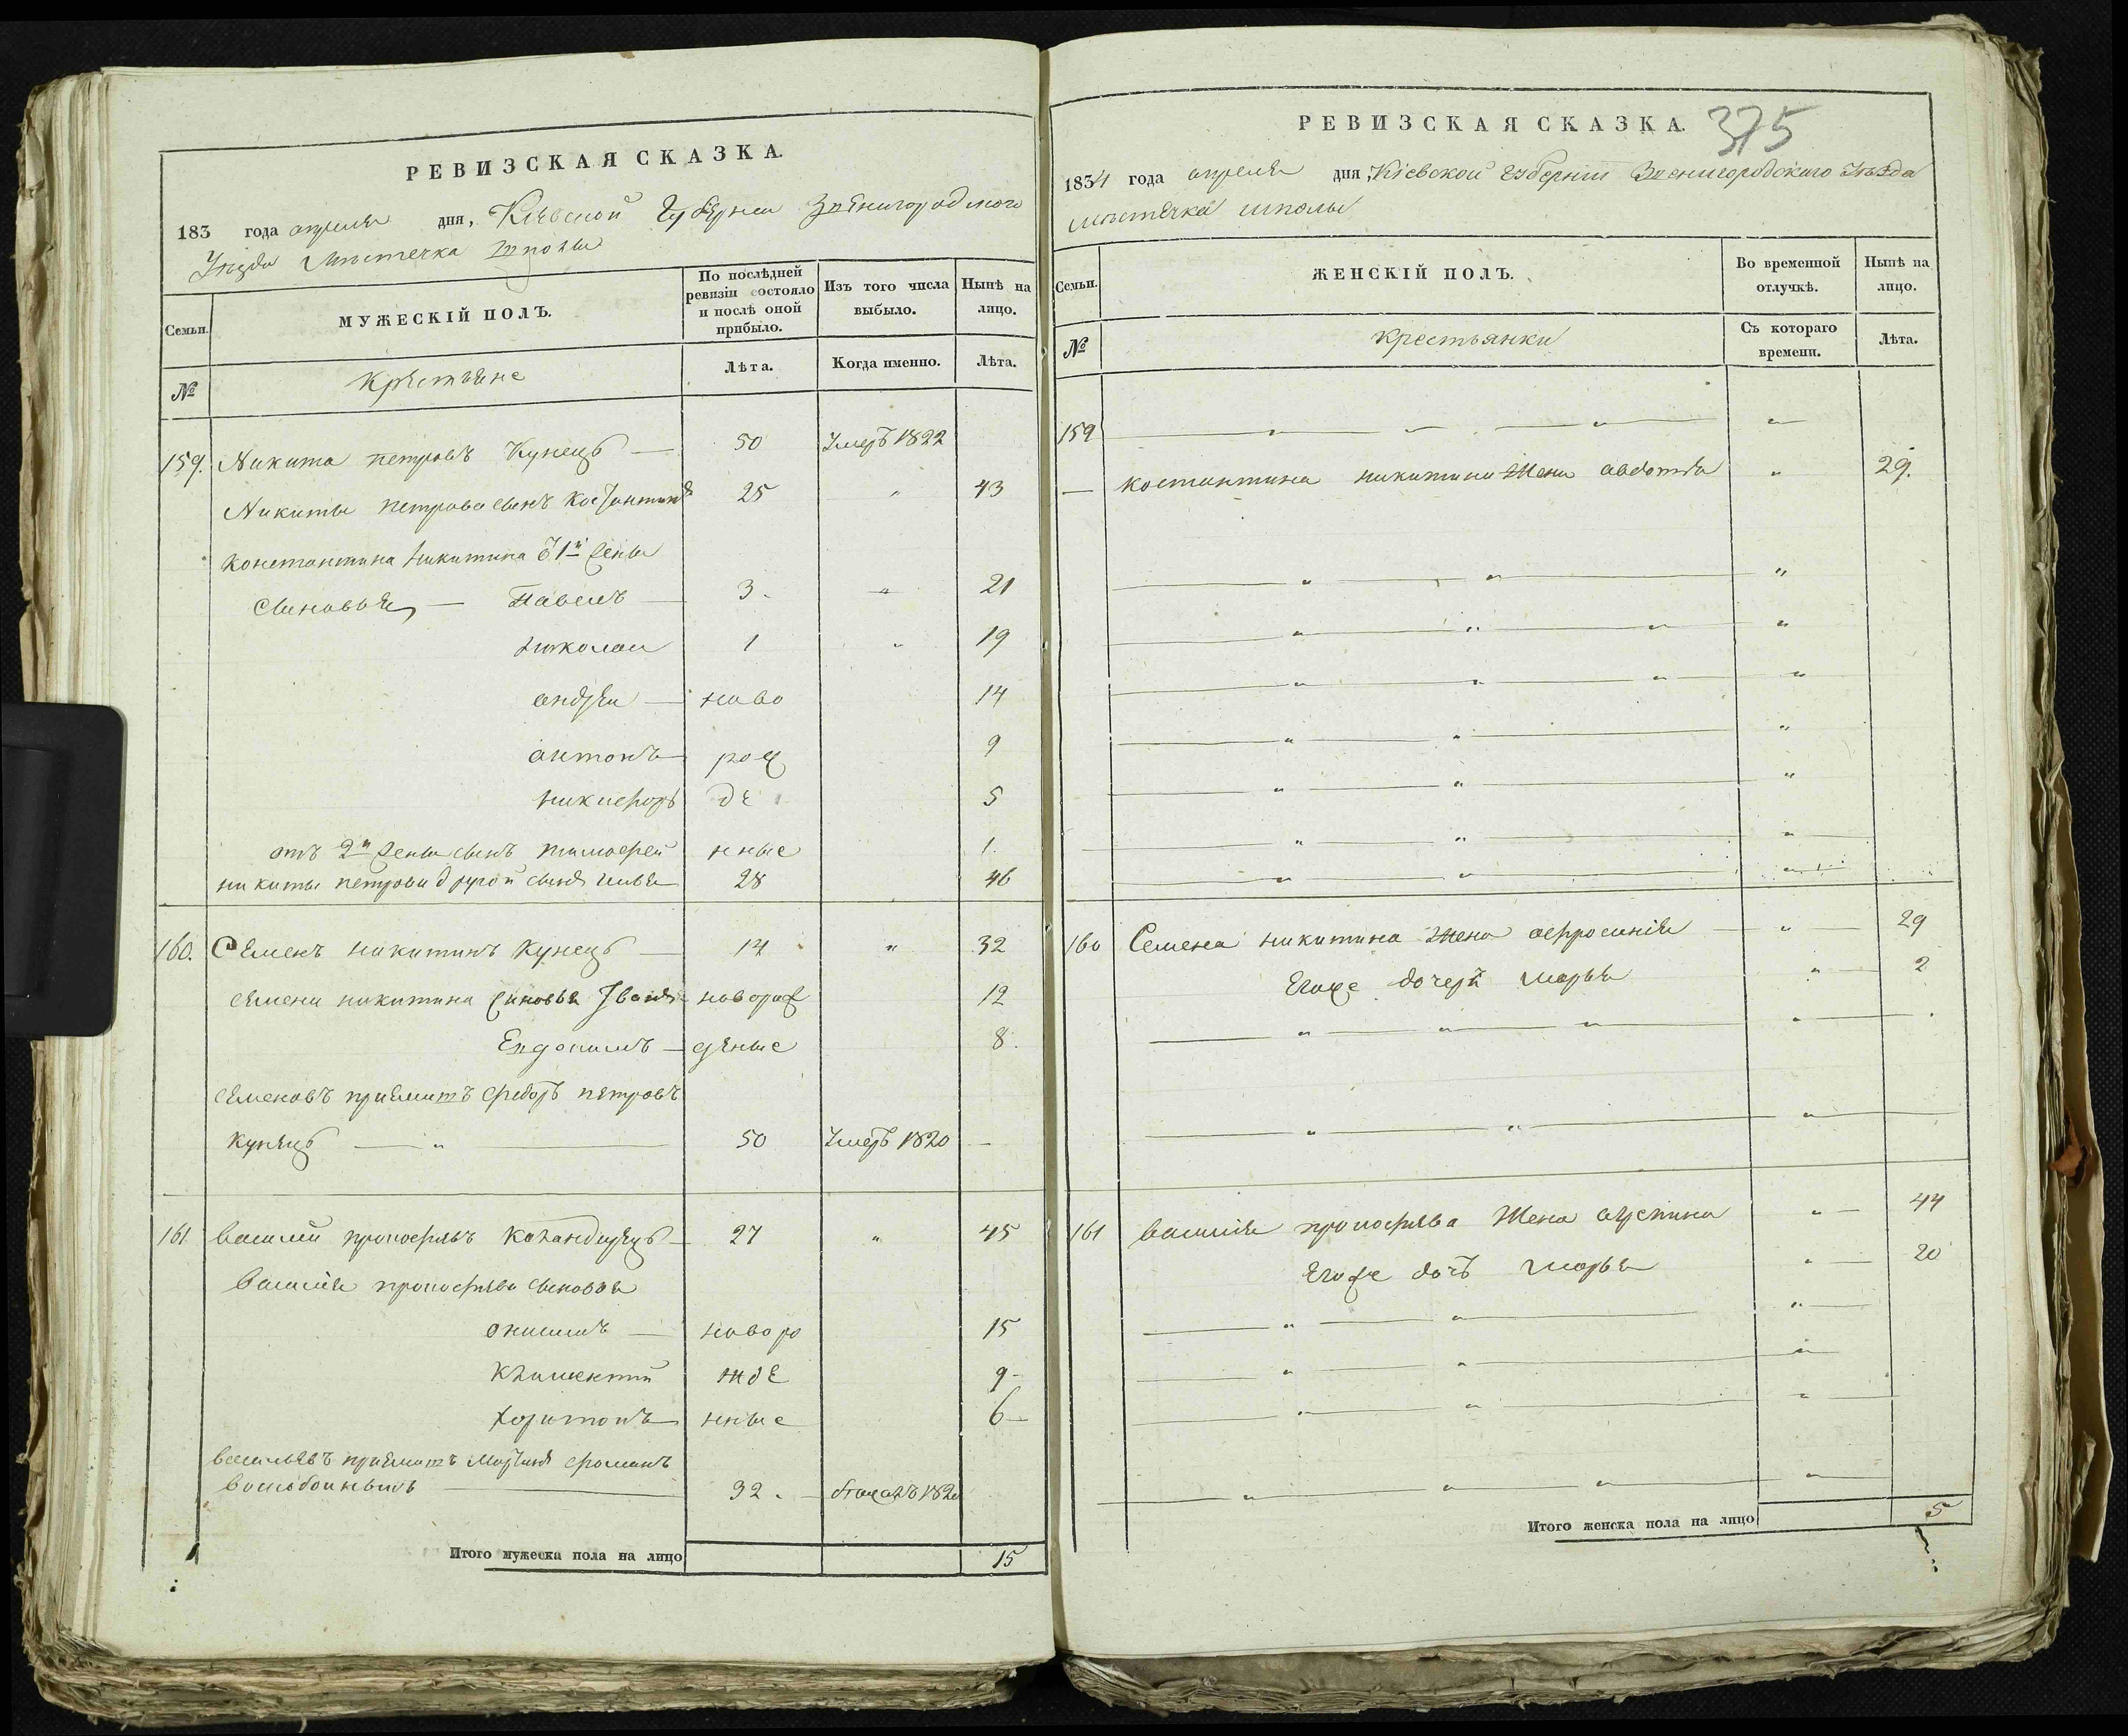 РЕВИЗСКАЯ СКАЗКА.
183 года апреля дня, Киевской Губернии Звенигородского
Уезда Местечка Шполы
Семьи.
МУЖЕСКІЙ ПОЛЪ.
По послѣдней ревизіи состояло и послѣ оной прибыло.
Изъ того числа выбыло.
Нынѣ на лицо.
№
Крестьяне
Лѣта.
Когда именно.
Лѣта.
159. Никита петровъ Кунецъ 50 Умеръ 1822
Никиты петрова сынъ Костантинъ 25 " 43
Константина Никитина 1й жены
Сыновья Павелъ 3. " 21
Николай 1 " 19
андрей ново 14
антонъ рож 9
никифоръ де 5
отъ 2й жены сынъ тимофей нные 1.
никиты петрова другой сынъ 28 46
160. Семенъ никитинъ Кунецъ 14 " 32
семена никитина сыновья Иванъ новорож 12
Евдокимъ деные 8.
семеновъ приемышъ федоръ петровъ
кунецъ " 50 Умеръ 1820
161 василий прокофьевъ 27 " 45
василия прокофьева сыновья
онисимъ новоро 15
Климентий жде 9
харитонъ нные 6
васильевъ приемышъ
32. 182
Итого мужеска пола на лицо 15
РЕВИЗСКАЯ СКАЗКА. 375
1834 года апреля дня, Кіевской губерніи Звенигородскаго Уѣзда
мѣстечка шполы
Семьи.
ЖЕНСКІЙ ПОЛЪ.
Во временной отлучкѣ.
Нынѣ на лицо.
№
Крестьянки
Съ котораго времени.
Лѣта.
159
костантина никитина жена авдотья " 29.
160 Семена никитина жена аефросинія " 29
Егоже дочери марья " 2
161 василія прокофьева жена " 44
Егоже дочь марья " 20
Итого женска пола на лицо 5